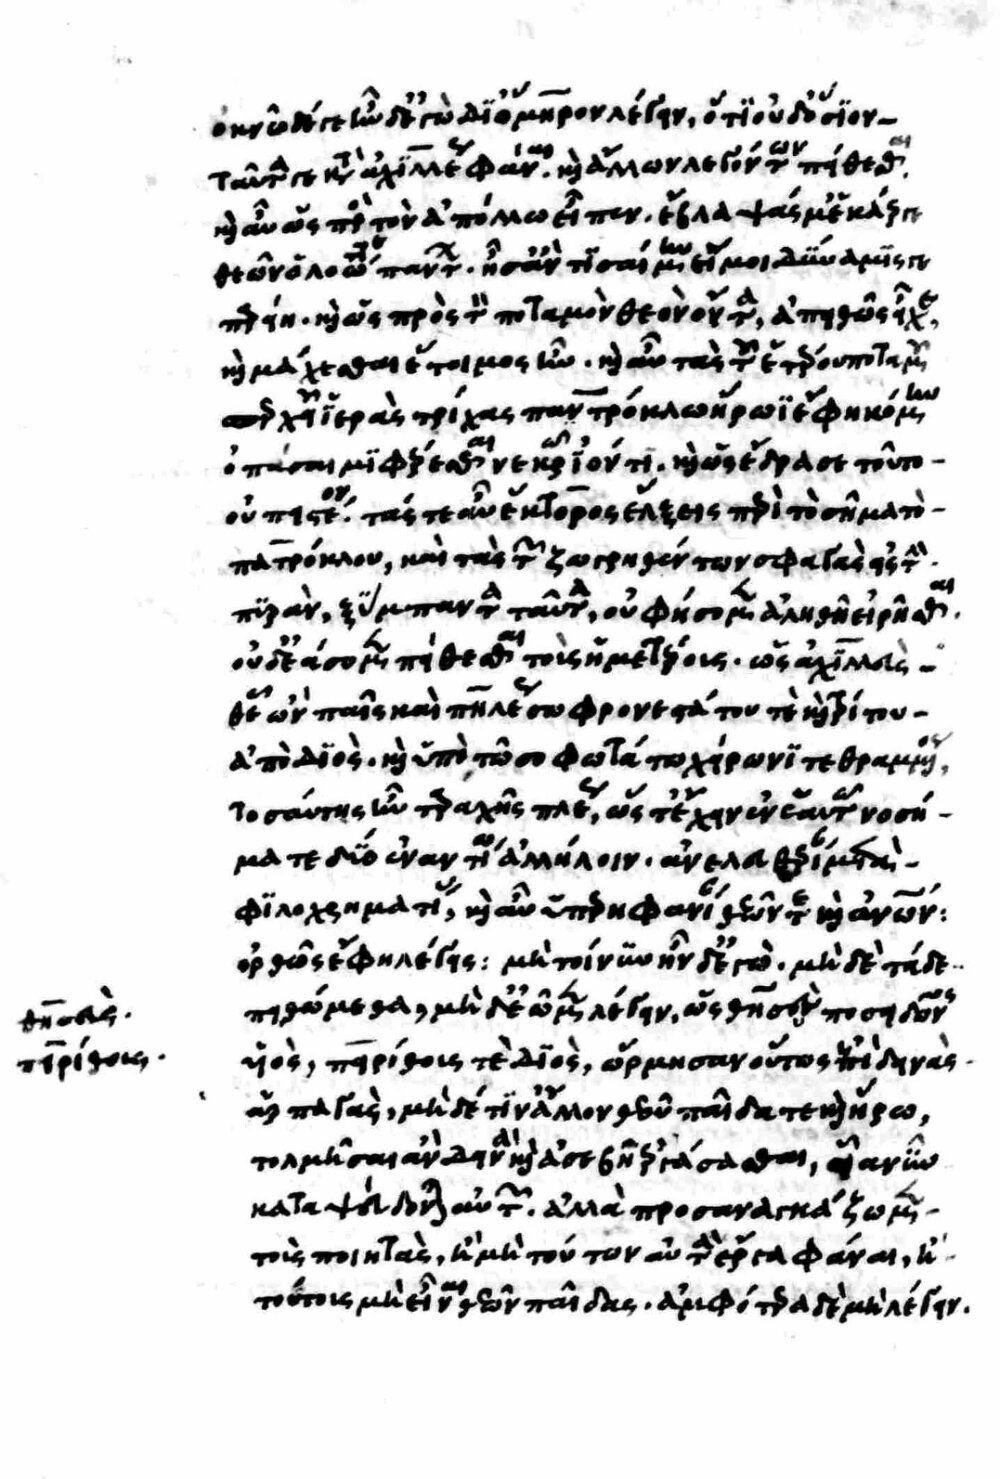 ὀκνῶ δέ γε ἦν δ' ἐγὼ δι' ὅμηρον λέγειν, ὅτι οὐδ' ὅσιον
ταῦτά γε κατὰ ἀχιλλέως φάναι. καὶ ἄλλων λεγόντων πείθεσθαι.
καὶ αὖ ὡς πρὸς τὸν ἀπόλλω εἶπεν. ἔβλαψάς μ' ἑκάεργε
θεῶν ὀλοώτατε πάντων. ἦ σ' ἂν τισαίμην εἴ μοι δύναμίς γε
παρείη. καὶ ὡς πρὸς τὸν ποταμὸν θεὸν ὄντα, ἀπειθῶς εἶχε,
καὶ μάχεσθαι ἕτοιμος ἦν. καὶ αὖ τὰς τοῦ ἑτέρου ποταμοῦ
σπερχειοῦ ἱερὰς τρίχας πατρόκλῳ ἥρωϊ ἔφη κόμην
ὀπάσαιμι φέρεσθαι νεκρῷ ὄντι. καὶ ὡς ἔδρασε τοῦτο
οὐ πειστέον. τάς τε αὖ ἕκτορος ἕλξεις περὶ τὸ σῆμα τὸ
πατρόκλου, καὶ τὰς τῶν ζωγρηθέντων σφαγὰς εἰς τὴν
πυράν, ξύμπαντα ταῦτα, οὐ φήσομεν ἀληθῆ εἰρῆσθαι.
οὐδ' ἐάσομεν πείθεσθαι τοὺς ἡμετέρους. ὡς ἀχιλλεὺς
θεᾶς ὢν παῖς καὶ πηλέως σωφρονεστάτου τὲ καὶ τρίτου
ἀπὸ διὸς. καὶ ὑπὸ τῷ σοφωτάτῳ χείρωνι τεθραμμένος,
τοσαύτης ἦν ταραχῆς πλέως, ὥς τ' ἔχειν ἐν ἑαυτῷ νοσή
ματε δύο ἐναντίω ἀλλήλοιν. ἀνελευθερίαν μετὰ
φιλοχρηματίας, καὶ αὖ ὑπερηφανίαν θεῶν τε καὶ ἀνθρώπων:
ὀρθῶς ἔφη λέγεις: μὴ τοίνυν ἦν δ' ἐγὼ. μὴ δὲ τάδε
πειθώμεθα, μὴ δ' ἐῶμεν λέγειν, ὡς θησεὺς ποσειδῶνος
υἱὸς, πειρίθους τὲ διὸς, ὥρμησαν οὕτως ἐπὶ δεινὰς
ἁρπαγάς, μὴ δέ τιν' ἄλλον θεοῦ παῖδά τε καὶ ἥρω,
τολμῆσαι ἂν δεινὰ καὶ ἀσεβῆ ἐργάσασθαι, οἷα νῦν
καταψεύδονται αὐτῶν. ἀλλὰ προσαναγκάζωμεν
τοὺς ποιητὰς, ἢ μὴ τούτων αὐτὰ ἔργα φάναι, ἢ
τούτους μὴ εἶναι θεῶν παῖδας. ἀμφότερα δὲ μὴ λέγειν.
θησεὺς.
πειρίθους.